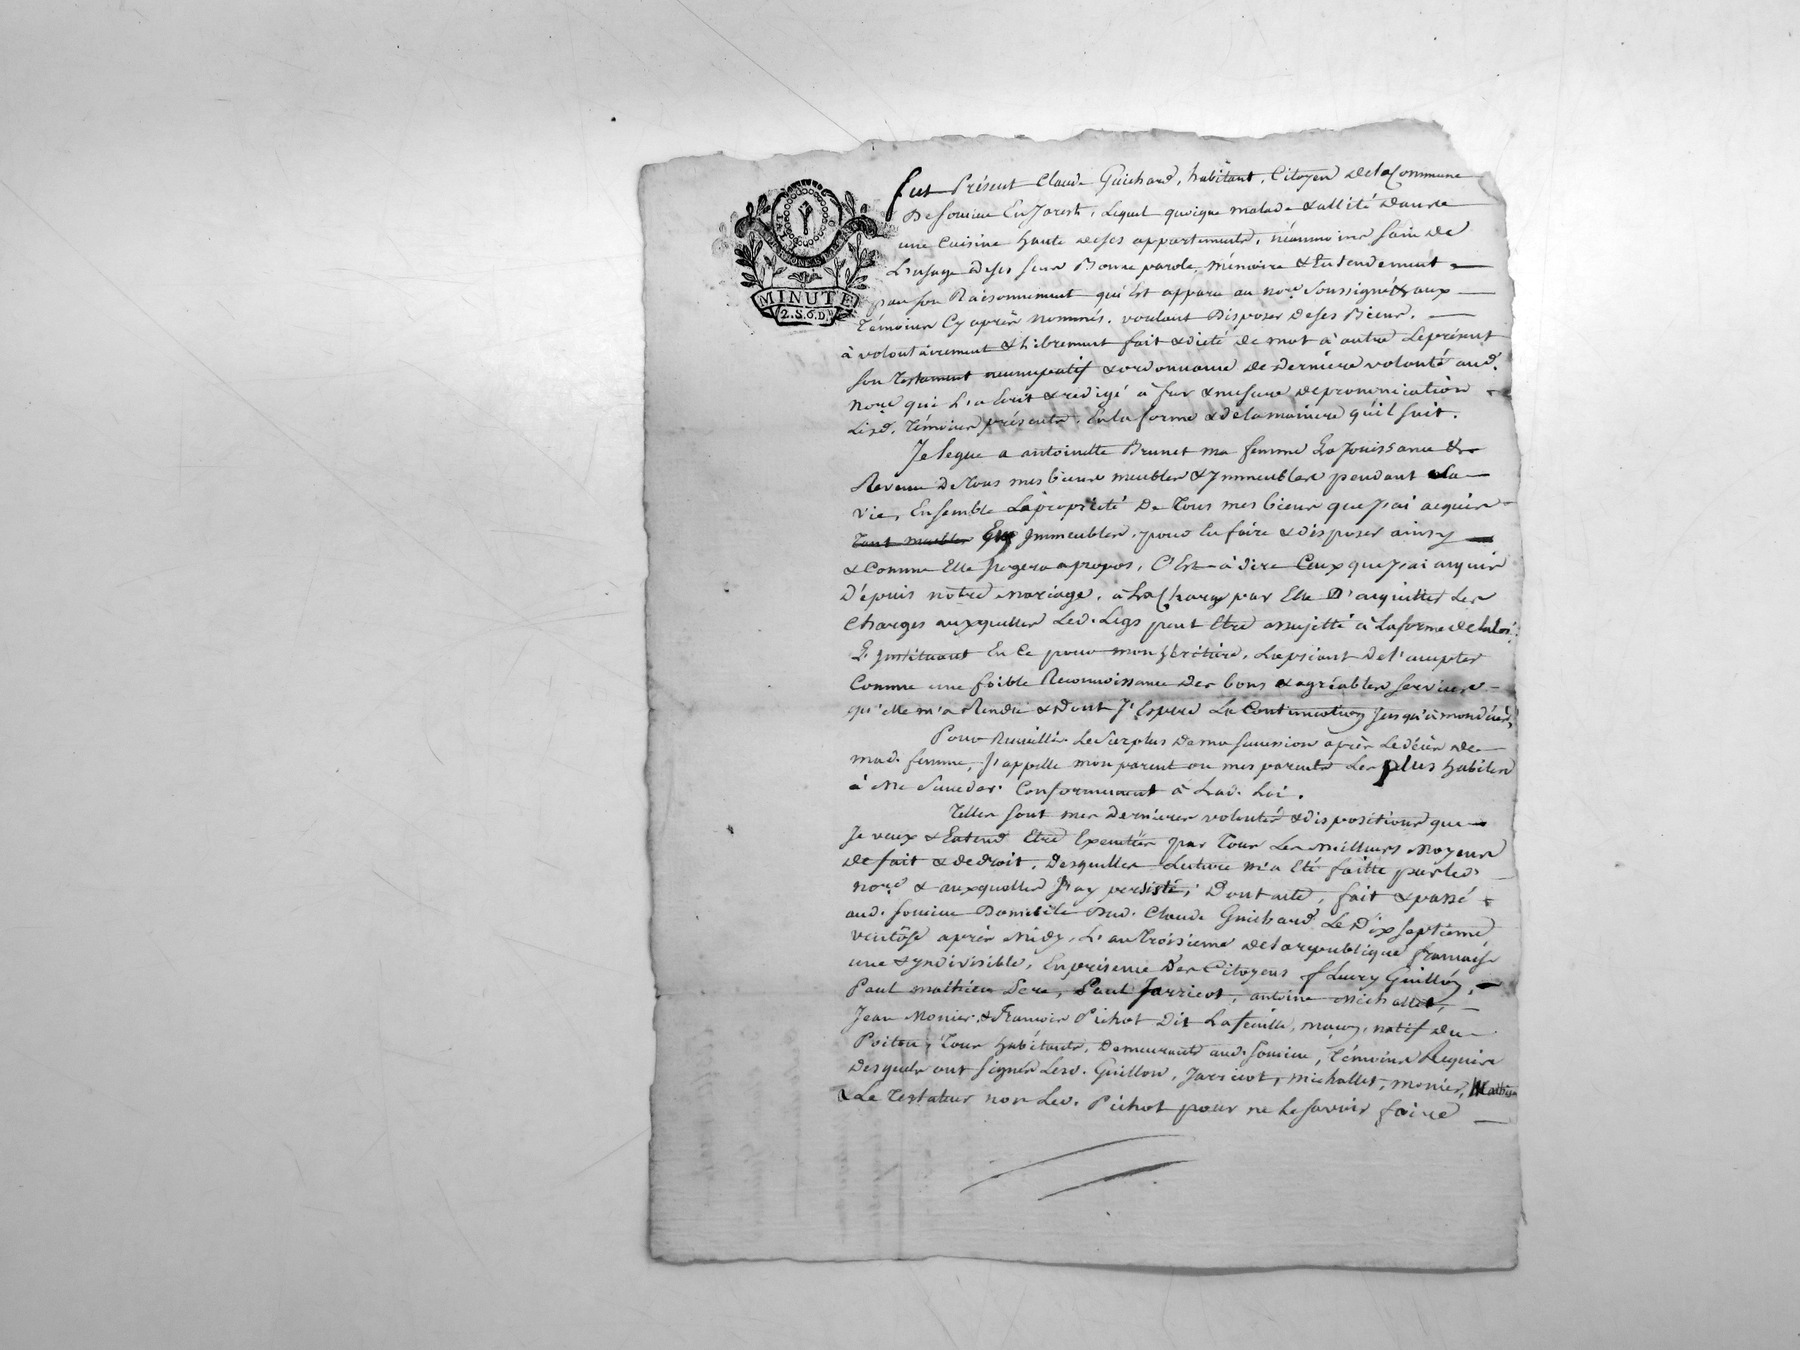 MINUTE
2.S.6.D.rs
fut Présent Claude Guichard, habitant, Citoyen dela Commune
De Soucieu En Jarest, Lequel quoique malade & allité dans
une Cuisine haute deses appartements, néanmoins sain de
L'usage deses sens Bonne parole, mémoire & Entendement
par son Raisonnement qui Est apparu au nore. Soussigné & aux
Témoins Cy après nommés, voulant Disposer Deses Biens,
à volontairement & Librement fait & dicté de mot à autre Leprésent
son Testament nuncupatif & ordonnance de derniere volonté aud.
nore. qui L'a Ecrit & redigé à fur & mesure deprononciation
Lesd. Témoins présents, En la forme & dela maniere qu'il suit.
Je Legue a antoinette Brunet ma femme La Jouissance &
Revenu De Tous mes biens meubles & Immeubles pendant Sa
vie, Ensemble La propriété De Tous mes biens que J'ai acquis
Tant meubles Immeubles, pour En faire & disposer ainsy
& Comme Elle Jugera apropos, C'Est à dire Ceux que J'ai acquis
Dépuis notre mariage, à La Charge par Elle D'acquitter Les
Charges auxquelles Led. Legs peut Etre assujetti à La forme de la Loi;
L'Instituant En Ce pour mon héritiere, La priant de l'accepter
Comme une foible Reconnoissance Des bons & agréables services
qu'elle m'a Rendu & dont J'Espere La Continuation Jusqu'à mon décès;
Pour Recueillir Le Surplus De ma succession après Le décès de
mad. femme, J'appelle mon parent ou mes parents Les plus habiles
à Me Succeder Conformement à Lad. Loi.
Telles sont mes dernieres volontés & dispositions que
Je veux & Entend Etre Executées par Tous Les Meilleurs Moyens
De fait & de droit, Desquelles Lecture m'a Eté faitte par led.
nore. & auxquelles J'ay persisté; Dont acte, fait & passé
aud. Soucieu Domicile Dud. Claude Guichard Le Dix septieme
ventôse après Midy, L'an Troisieme de la republique françaisse
une & yndivisible, En présence Des Citoyens fleury Guillon,
Paul mathieu Paul Jarricot, antoine Michallet,
Jean Monier, & François Pichot Dit La feuille, maçon, natif du
Poitou, Tous habitants, Demeurants aud. Soucieu, Témoins Requis
Desquels ont signés Lesd. Guillon, Jarricot, michallet, monier, Mathieu
& Le Testateur non Led. Pichot pour ne le savoir faire